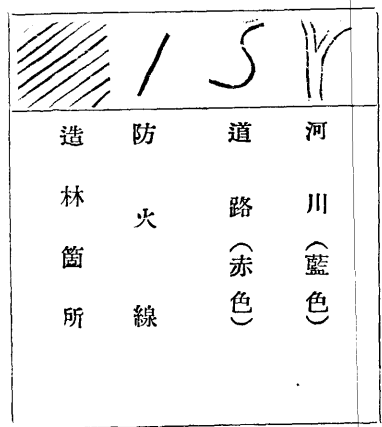 河川（藍色）
道路（赤色）
防火線
造林箇所